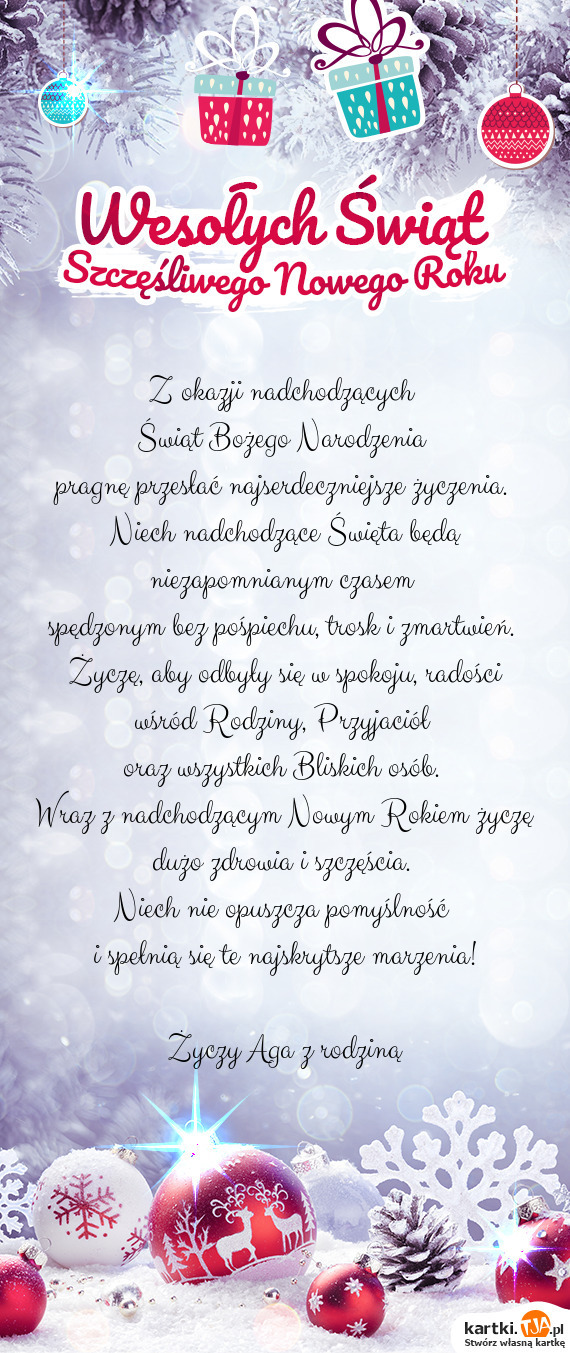 Wesołych Świąt
Szczęśliwego Nowego Roku
Z okazji nadchodzących
Świąt Bożego Narodzenia
pragnę przesłać najserdeczniejsze życzenia.
Niech nadchodzące Święta będą
niezapomnianym czasem
spędzonym bez pośpiechu, trosk i zmartwień.
Życzę, aby odbyły się w spokoju, radości
wśród Rodziny, Przyjaciół
oraz wszystkich Bliskich osób.
Wraz z nadchodzącym Nowym Rokiem życzę
dużo zdrowia i szczęścia.
Niech nie opuszcza pomyślność
i spełnią się te najskrytsze marzenia!
Życzy Aga z rodziną
kartki.TJA.pl
Stwórz własną kartkę